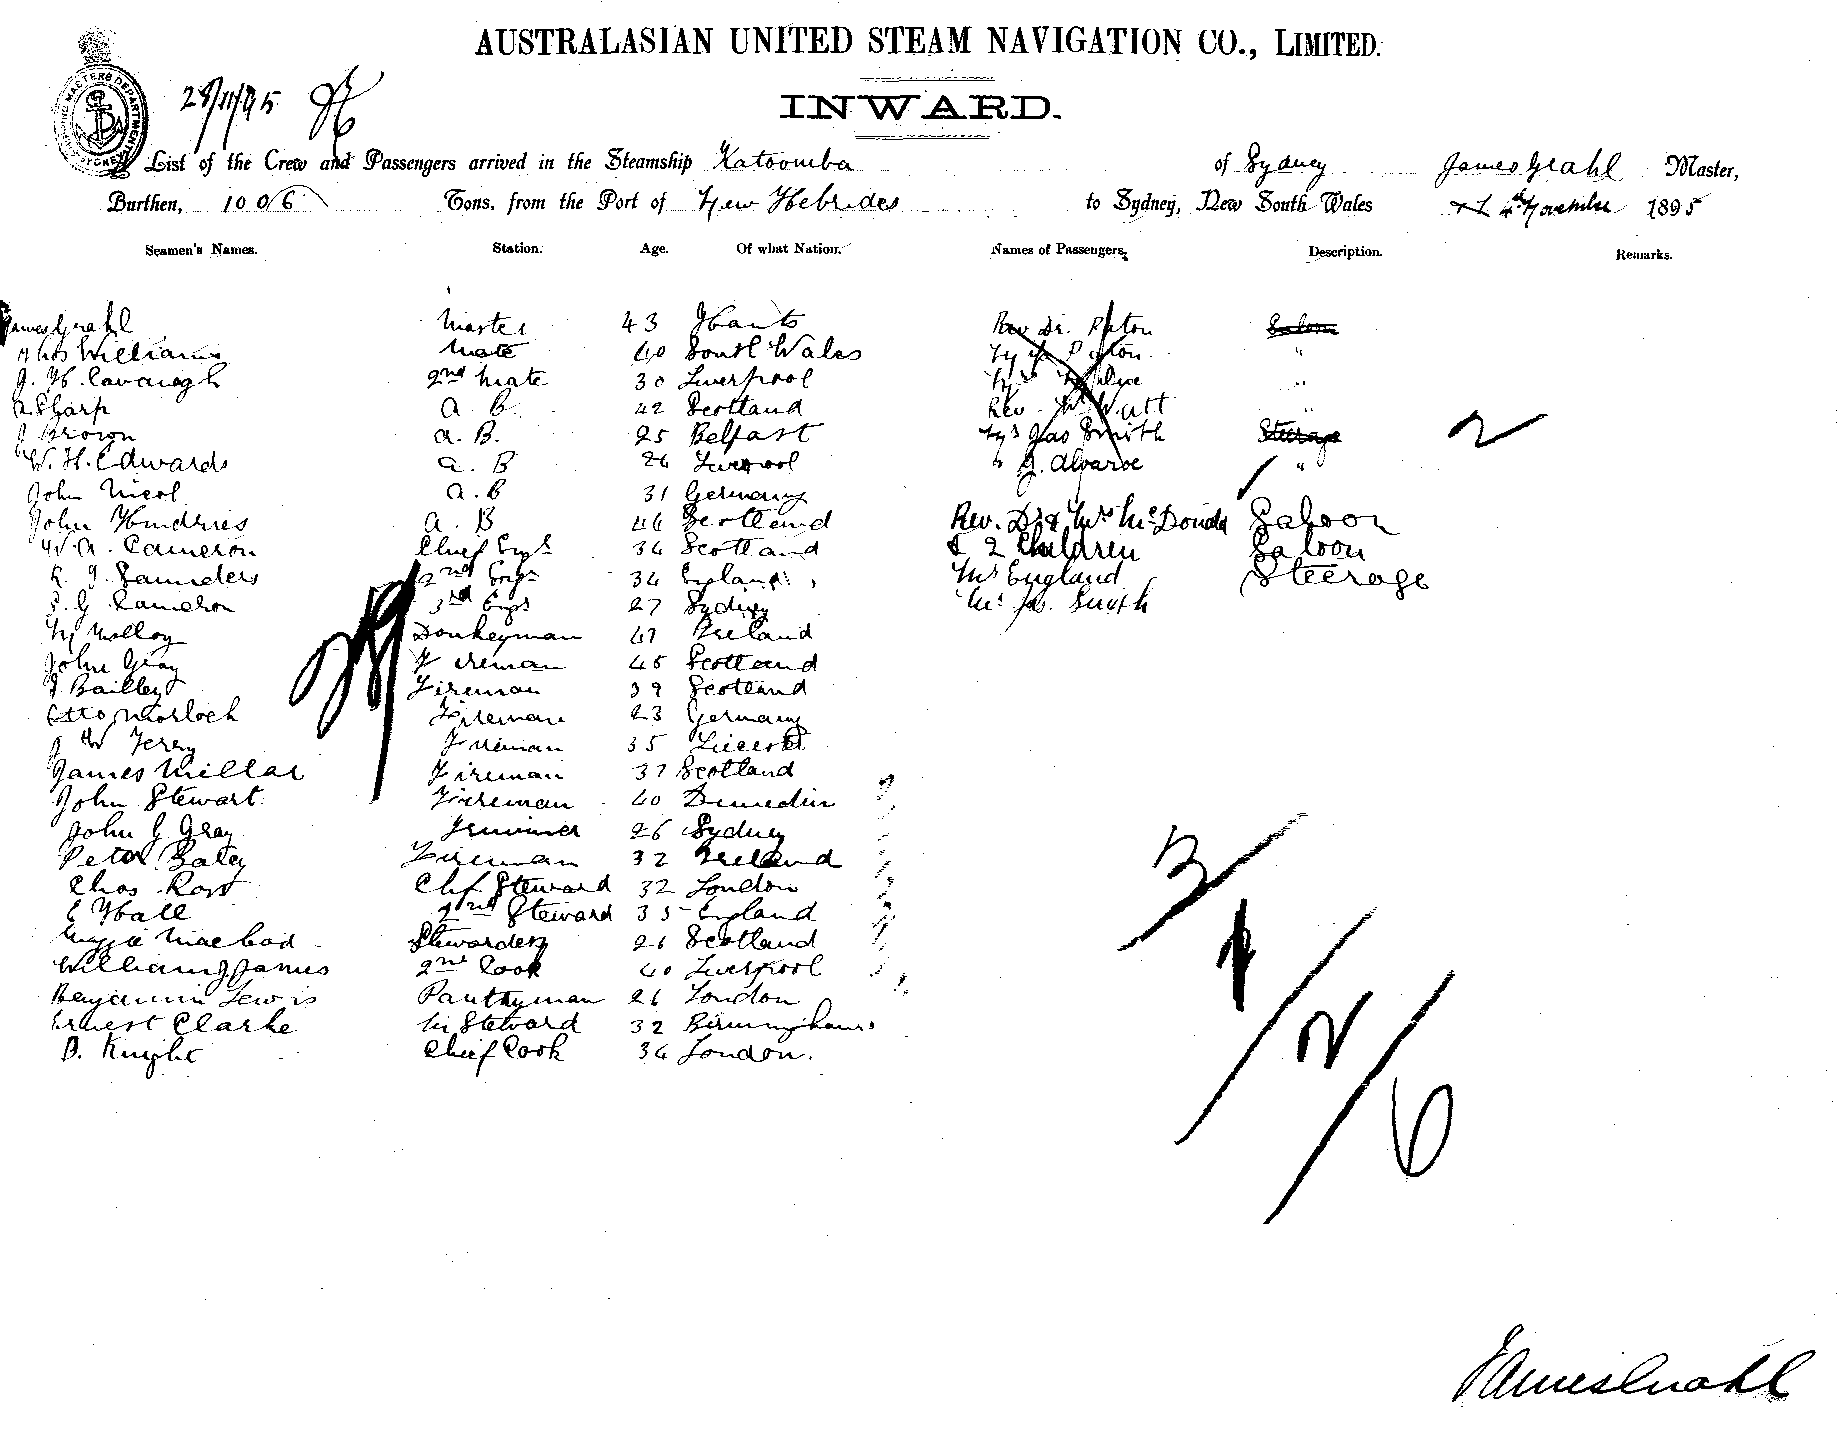 AUSTRALASIAN UNITED STEAM NAVIGATION CO., LIMITED.
28/11/95
INWARD.
List of the Crew and Passengers arrived in the Steamship Katoomba of Sydney James Grahl Master,
Burthen, 1006 Tons, from the Port of New Hebrides to Sydney, New South Wales November 1895
Seamen's Names. Station. Age. Of what Nation. Names of Passengers, Description. Remarks.
James Grahl Master 43 Hants Rev Dr. Paton Saloon
Williams Mate 40 South Wales "
J. H. Cavanagh 2nd Mate 30 Liverpool "
A Sharp A. B. 42 Scotland Rev. Watt "
J Brown A. B. 25 Belfast Jas Smith Steerage 2
W. H. Edwards A. B 26 Liverpool " J. "
John Nicol A. B 31 Germany
John Humdries A. B 46 Scotland Rev. Dr & Mrs McDonald Saloon
W. A. Cameron Chief Engr 34 Scotland & 2 Children Saloon
Saunders 2nd Engr 34 England Mr England Steerage
Cameron 3rd Engr 27 Sydney Mr Jas. Smith
M Molloy Donkeyman 47 Ireland
John Gray Fireman 45 Scotland
Bailley Fireman 39 Scotland
Otto Morloch Fireman 23 Germany
Fireman 35
James Millar Fireman 37 Scotland
John Stewart Fireman 40 Dunedin
John G Gray Trimmer 26 Sydney
Peter Baley Fireman 32 Ireland
Chas Ross Chf Steward 32 London
E Hall 2nd Steward 35 England
Stewardess 26 Scotland
William J James 2nd Cook 40 Liverpool
Benjamin Lewis Pantryman 26 London
Ernest Clarke Steward 32 Birmingham
B. Knight Chief Cook 34 London.
3/1/2/6
James Grahl